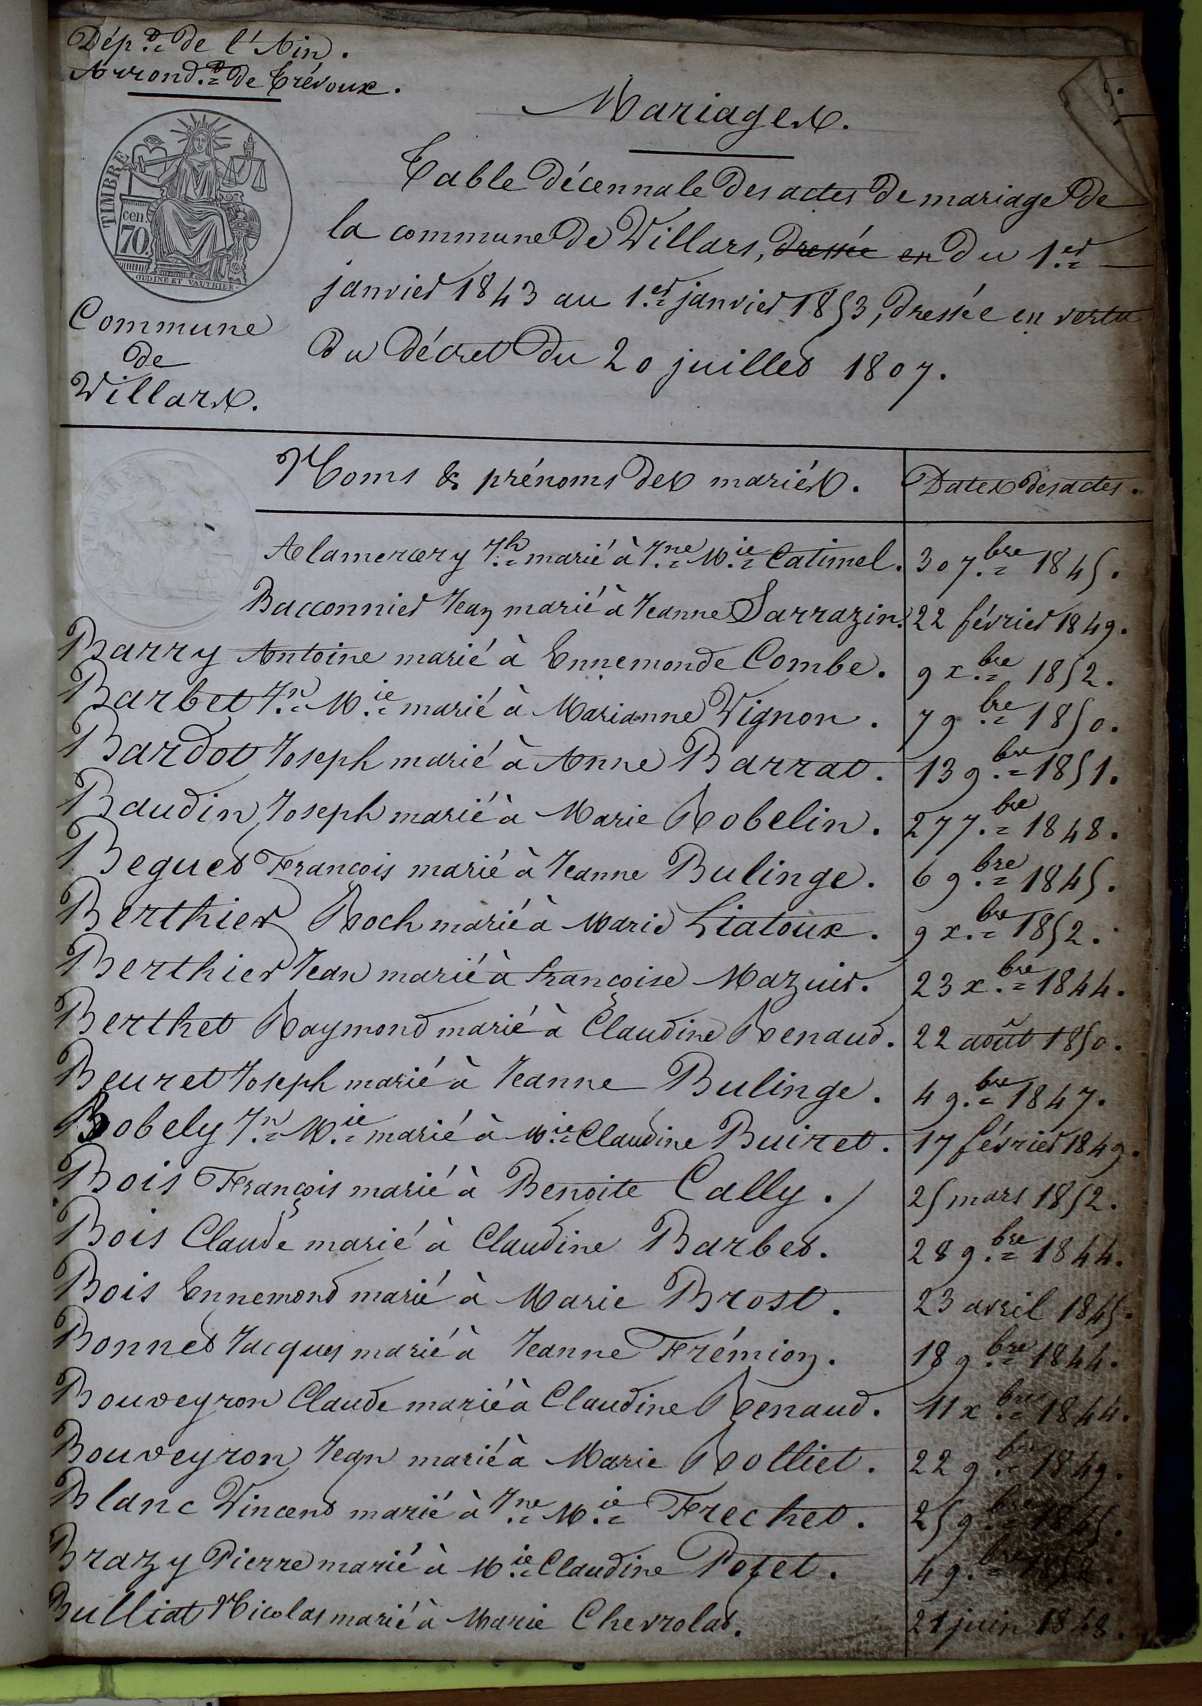 Dép.t de l'Ain.
Arrond.t de Trévoux.
Mariages.
TIMBRE
cen.
70
OUDINÉ ET VAUTHIER
Table décennale des actes de mariage de
la commune de Villars, dressée en du 1.er
janvier 1843 au 1.er janvier 1853, dressée en vertu
du décret du 20 juillet 1807.
Commune
de
Villars.
Noms & prénoms des mariés. Dates des actes.
marié à J.ne M.ie Catimel. 30 7.bre 1845.
Bacconnier Jean marié à Jeanne Sarrazin. 22 février 1849.
Barry Antoine marié à Ennemonde Combe. 9 x.bre 1852.
Barbet J.n M.ie marié à Marianne Vignon. 7 9.bre 1850.
Bardot Joseph marié à Anne Barrat. 13 9.bre 1851.
Baudin Joseph marié à Marie Robelin. 27 7.bre 1848.
Beguet François marié à Jeanne Bulinge. 6 9.bre 1845.
Berthier Roch marié à Marie Liatoux. 9 x.bre 1852.
Berthier Jean marié à françoise Mazuir. 23 x.bre 1844.
Berthet Raymond marié à Claudine Renaud. 22 août 1850.
Beuret Joseph marié à Jeanne Bulinge. 4 9.bre 1847.
Bobely J.n M.ie marié à M.ie Claudine Buiret. 17 février 1849.
Bois François marié à Benoite Cally. 25 mars 1852.
Bois Claude marié à Claudine Barbet. 28 9.bre 1844.
Bois Ennemond marié à Marie Brost. 23 avril 1845.
Bonnet Jacques marié à Jeanne Frémion. 18 9.bre 1844.
Bouveyron Claude marié à Claudine Renaud. 11 x.bre 1844.
Bouveyron Jean marié à Marie Rolliet. 22 9.bre 1849.
Blanc Vincent marié à J.ne M.ie Frechet. 25 9.bre 1845.
Brazy Pierre marié à M.ie Claudine Pozet. 4 9.bre
Bulliat Nicolas marié à Marie Chevrolat. 21 juin 1848.